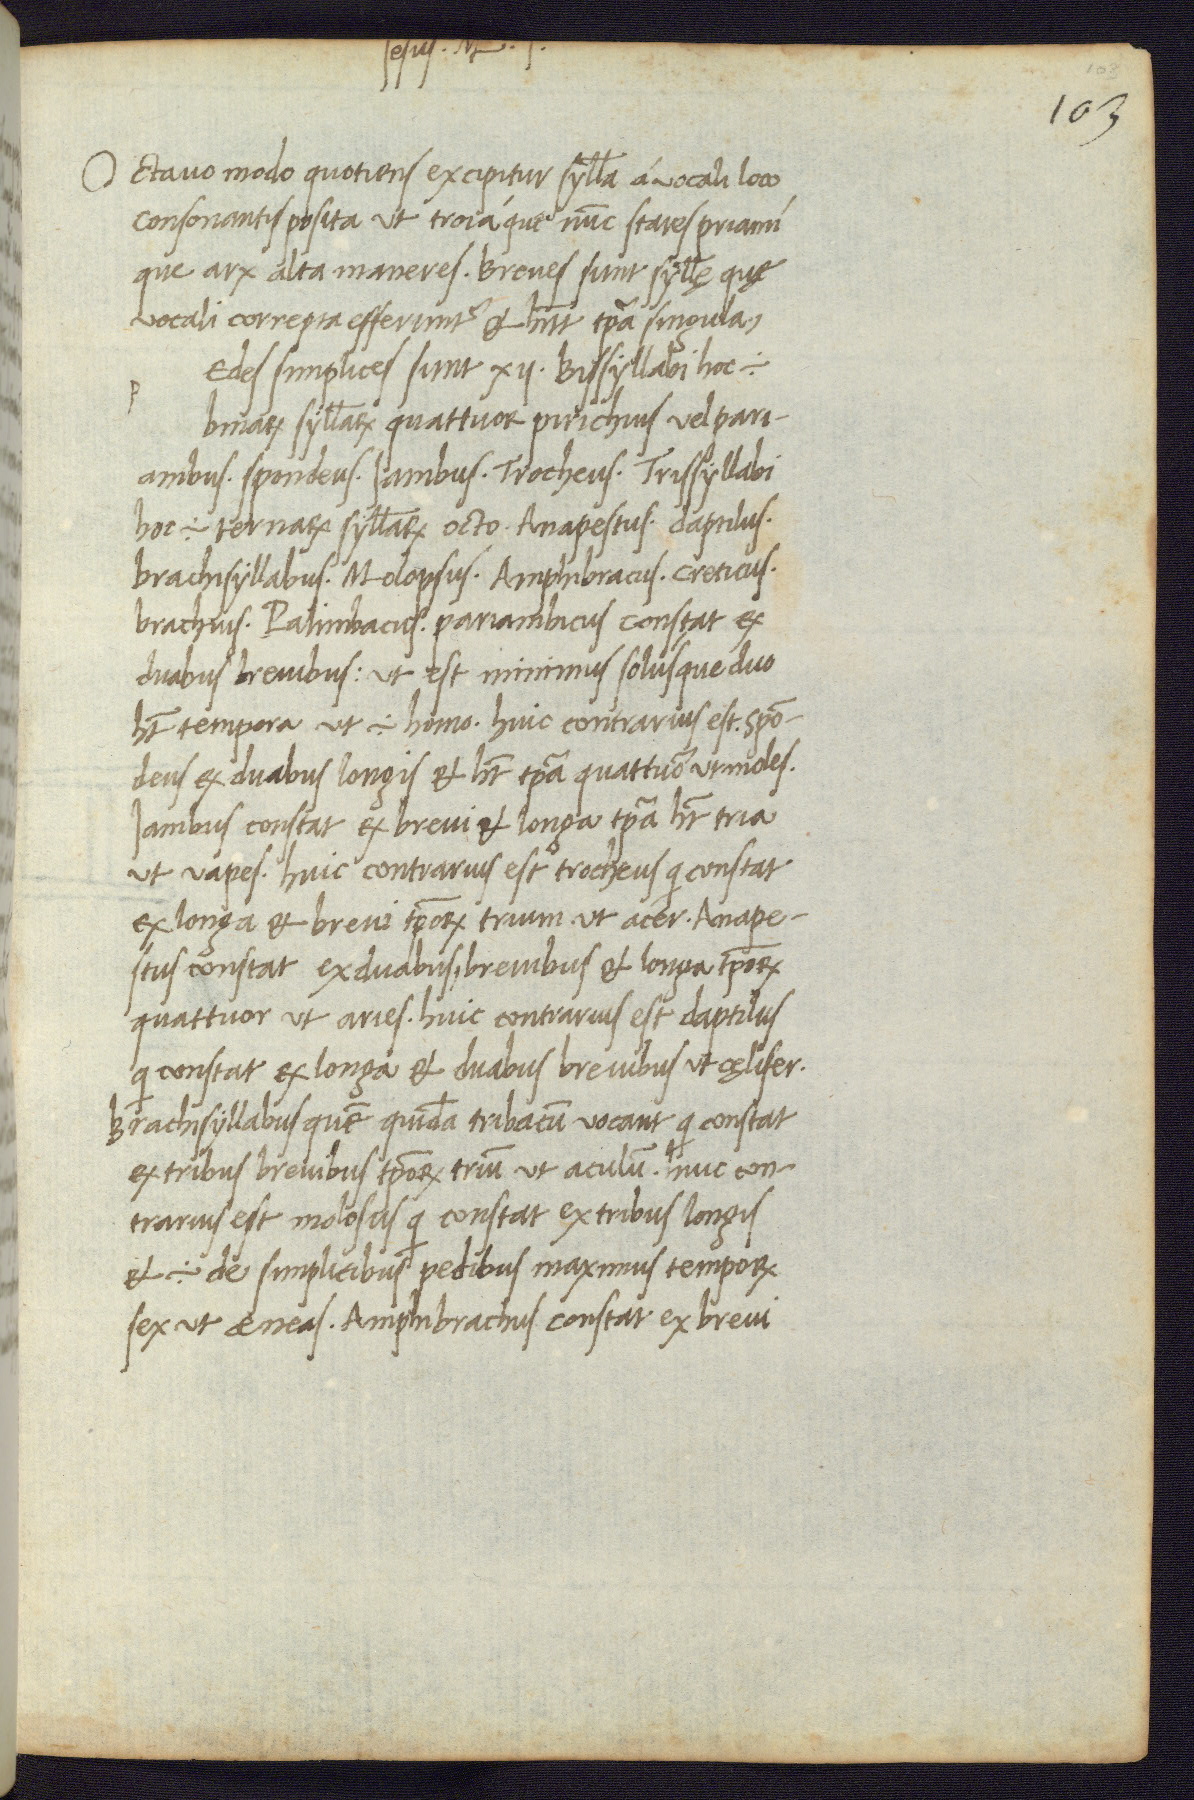 103
103
O Ctauo modo quotiens excipitur sylla á vocali loco
consonantis posita ut troiáque nunc stares priamí
que arx alta maneres. Breues sunt syllę quę
vocali correpta efferunt᷑ & hn̄t tp̄a singula,
P Edes simplices sunt xij. Bissyllabi hoc ÷
binaꝝ syllaꝝ quattuor pirichius vel pari-
ambus. spondeus. Iambus. Trocheus. Trissyllabi
hoc ÷ ternaꝝ syllaꝝ octo. Anapestus. daptilus.
brachisyllabus. Molopsus. Amphibracus. creticus.
brachius. Palimbacius. pariambicus constat ex
duabus breuibus: ut est minimus solusque duo
ht̄ tempora ut ÷ homo. huic contrarius est. spō-
deus ex duabus longis & ht̄ tp̄a quattuor ut moles.
Iambus constat ex breui & longa tp̄a ht̄ tria
ut vapes. huic contrarius est trocheus qi constat
ex longa & breui tp̄oꝝ trium ut acer. Anape-
stus constat ex duabus, breuibus & longa tp̄oꝝ
quattuor ut aries. huic contrarius est daptilus
qi constat ex longa & duabus breuibus ut cęlifer.
Brachisyllabus quē quidā tribacū vocant qi constat
ex tribus breuibus tp̄oꝝ triū ut aculū. huic con-
trarius est molosus qi constat ex tribus longis
& ÷ de simplicibus pedibus maximus tempoꝝ
sex ut æneas. Amphibrachus constat ex breui